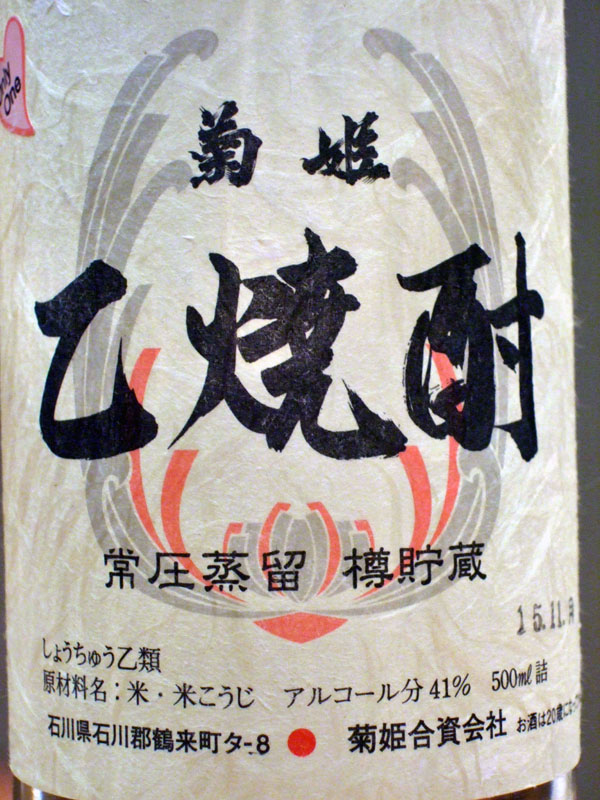 Only
One
菊姫
乙焼酎
常圧蒸留 樽貯蔵
15.11.月
しょうちゅう乙類
原材料名:米・米こうじ アルコール分41% 500ml詰
石川県石川郡鶴来町タ-8 菊姫合資会社 お酒は20歳になって